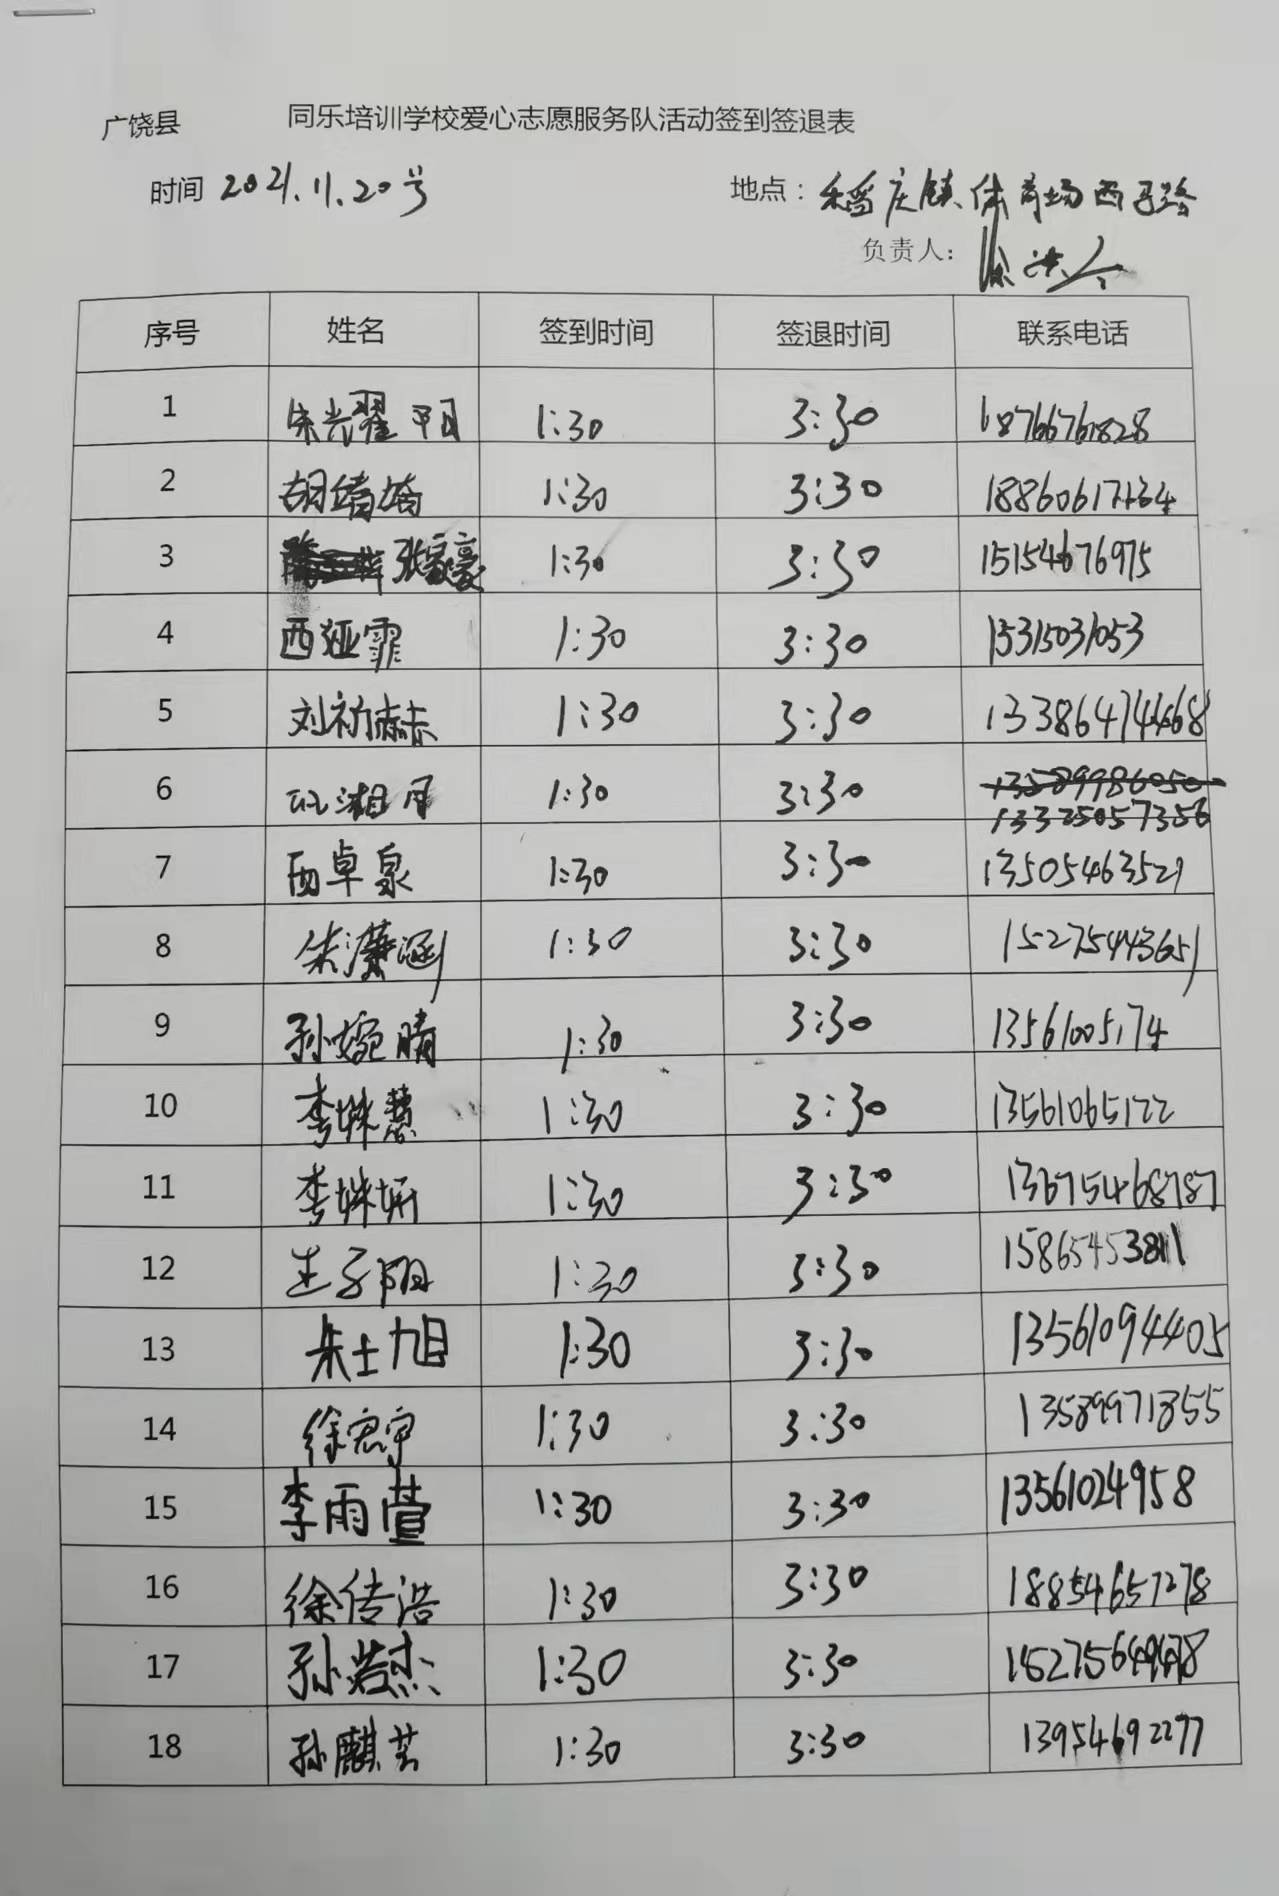 广饶县 同乐培训学校爱心志愿服务队活动签到签退表
时间 2021.11.20号 地点：稻庄镇体育场西马路
负责人：
序号 姓名 签到时间 签退时间 联系电话
1 朱光耀阳 1:30 3:30 18766761828
2 胡靖埼 1:30 3:30 18860617134
3 张家豪 1:30 3:30 15154676975
4 西娅霏 1:30 3:30 15315031053
5 刘祈赫 1:30 3:30 13386474468
6 湘月 1:30 3:30
7 西卓泉 1:30 3:30 13505463521
8 朱濂涵 1:30 3:30 15275443651
9 孙婉晴 1:30 3:30 13561005174
10 李姝慧 1:30 3:30 13561065122
11 李姝妍 1:30 3:30 13675468787
12 生子阳 1:30 3:30 15865453811
13 朱士旭 1:30 3:30 13561094405
14 徐宏宇 1:30 3:30 13589971355
15 李雨萱 1:30 3:30 13561024958
16 徐传浩 1:30 3:30 18854657278
17 孙若杰 1:30 3:30
18 孙麒芸 1:30 3:30 13954692277